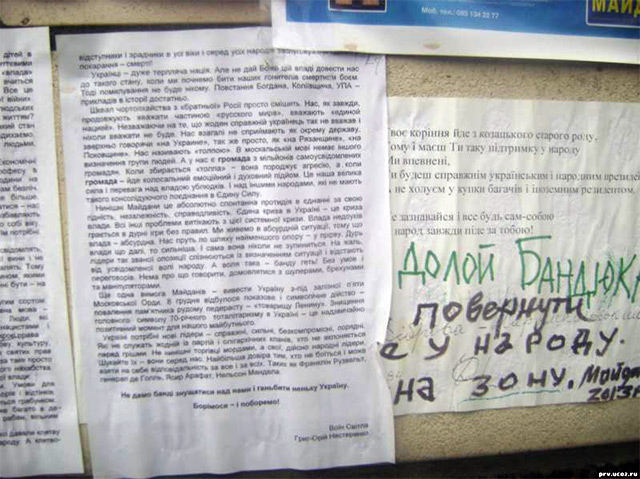 Моб. тел.: 095 134 22 77
МАЙД
дітей в
відступники і зрадники в усі віки і серед усіх народів
покарання – смерть!
Українці – дуже терпляча нація. Але не дай Боже цій владі довести нас
до такого стану, коли ми почнемо бити наших гонителів смертним боєм.
Тоді помилування не буде нікому. Повстання Богдана, Коліївщина, УПА –
прикладів в історії достатньо.
Шквал чортопхайства з «братньої» Росії просто смішить. Нас, як завжди,
продовжують вважати частиною «русского мира», вважають «единой
нацией». Незважаючи на те, що жоден справжній українець так не вважав і
ніколи вважати не буде. Нас взагалі не сприймають як окрему державу,
зверхньо говорячи «на Украине», так же просто, як «на Рязанщине», «на
Псковщине». Нас називають «толпою». В москальській мові немає іншого
визначення групи людей. А у нас є громада з мільйонів самоусвідомлених
громадян. Коли збирається «толпа» – вона породжує агресію, а коли
громада – йде колосальний емоційний і духовний підйом. Це наша велика
сила і перевага над владою ублюдків. І над іншими народами, які не мають
такого консолідуючого поєднання в Єдину Силу.
Нинішні Майдани це абсолютно спонтанна протидія в єднанні за свою
гідність, незалежність, справедливість. Єдина криза в Україні – це криза
влади. Всі інші проблеми витікають з цієї системної кризи. Влада недоухів
грається в дурні ігри без правил. Ми живемо в абсурдній ситуації, тому що
влада – абсурдна. Нас пруть по шляху найменшого опору – у прірву. Дурь
влади що далі, то сильніша. І сама вона ніколи не зупиниться. На жаль,
лідери так званої опозиції спізнюються із визначенням ситуації і відстають
від усвідомленої волі народу. А воля така – банду геть! Без умов і
переговорів. Нема про що говорити, домовлятися з шулерами, брехунами
та маніпуляторами.
Ще одна вимога Майданів – вивести Україну з-під залізної п'яти
Московської Орди. 8 грудня відбулося показове і символічне дійство –
повалення пам'ятника рудому педерасту – «товарищу Ленину». Знищення
головного символу 70-річного тоталітаризму в Україні – це надзвичайно
позитивний момент для нашого майбутнього.
Україні потрібні нові лідери – справжні, сильні, безкомпромісні, порядні.
Які не служать жодній із партій і олігархічних кланів, хто не вклоняється
перед грішми. Не нинішні торгівці мордами, а свої, дійсно народні лідери.
Шукайте їх – вони серед нас. Найбільша довіра тим, хто не боїться і може
взяти на себе відповідальність за все і за всіх. Таких як Франклін Рузвельт,
генерал де Голль, Ясир Арафат, Нельсон Мандела.
Не дамо банді знущатися над нами і ганьбити неньку Україну.
Боримося – і поборемо!
Воїн Світла
Григ-Юрій Нестеренко
воє коріння йде з козацького старого роду,
ому і маєш Ти таку підтримку у народу
Ми впевнені,
и будеш справжнім українським і народним президентом
, не холуєм у купки багачів і іноземним резидентом.
е зазнавайся і все будь сам-собою
народ завжди піде за тобою!
ДОЛОЙ БАНДЮКА
повернути
є у народу.
на зону. Майдан
2013р
prv.ucoz.ru